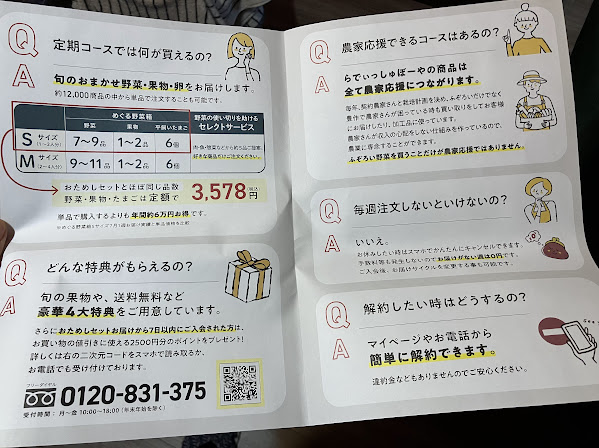 Q
定期コースでは何が買えるの?
A
旬のおまかせ野菜・果物・卵をお届けします。
約12,000商品の中から単品で注文することも可能です。
めぐる野菜箱
野菜 果物 平飼いたまご
野菜の使い切りを助ける
セレクトサービス
Sサイズ 7〜9品 1〜2品 6個
(1〜2人分)
Mサイズ 9〜11品 1〜2品 6個
(2〜4人分)
好きな商品だけご注文ください。
おためしセットとほぼ同じ品数
野菜・果物・たまごは定額で 3,578円(税込)
単品で購入するよりも年間約6万円お得です。
Q
どんな特典がもらえるの?
A
旬の果物や、送料無料など
豪華4大特典をご用意しています。
さらにおためしセットお届けから7日以内にご入会された方は、
お買い物の値引きに使える2500円分のポイントをプレゼント!
詳しくは右の二次元コードをスマホで読み取るか、
お電話でも受け付けております。
フリーダイヤル
0120-831-375
受付時間:月〜金 10:00〜18:00(年末年始を除く)
Q
農家応援できるコースはあるの?
A
らでぃっしゅぼーやの商品は
全て農家応援につながります。
毎年、契約農家さんと栽培計画を決め、ふぞろいだけでなく
豊作で農家さんが困っている時も買い取りをしてお客様
にお届けしたり、加工品に使っています。
農家さんが収入の心配をしない仕組みを作っているので、
農業に専念することができます。
ふぞろい野菜を買うことだけが農家応援ではありません。
Q
毎週注文しないといけないの?
A
いいえ。
お休みしたい時はスマホでかんたんにキャンセルできます。
手数料等も発生しないのでお届けがない週は0円です。
ご入会後、お届けサイクルを変更する事も可能です。
Q
解約したい時はどうするの?
A
マイページやお電話から
簡単に解約できます。
違約金などもありませんのでご安心ください。